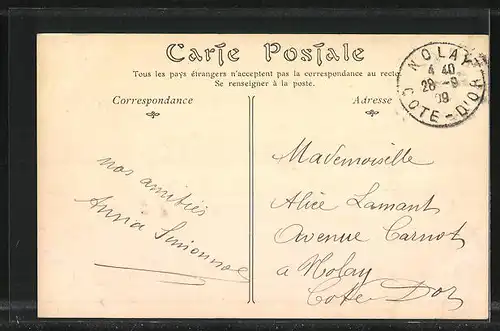 Carte Postale
Tous les pays étrangers n'acceptent pas la correspondance au recto.
Se renseigner à la poste.
Correspondance
Adresse
NOLAY
4 40
28 -9
09
COTE-D'OR
nos amitiés
Anna
Mademoiselle
Alice Lamant
Avenue Carnot
a Nolay
Cote D'or